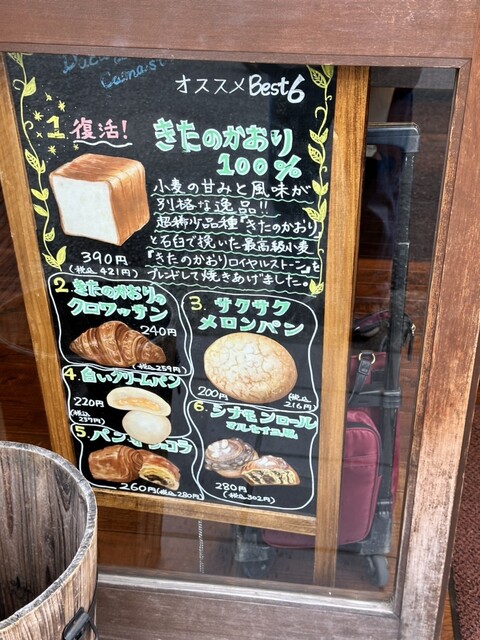 オススメBest6
1 復活!
きたのかおり
100%
小麦の甘みと風味が
別格な逸品!!
超稀少品種『きたのかおり』
と石臼で挽いた最高級小麦
『きたのかおりロイヤルストーン』を
ブレンドして焼きあげました。
390円
(税込 421円)
2. きたのかおりの
クロワッサン
240円
(税込259円)
3. サクサク
メロンパン
200円
(税込
216円)
4. 白いクリームパン
220円
(税込
237円)
5. パンオショコラ
260円(税込280円)
6. シナモンロール
マルセイユ風
280円
(税込302円)